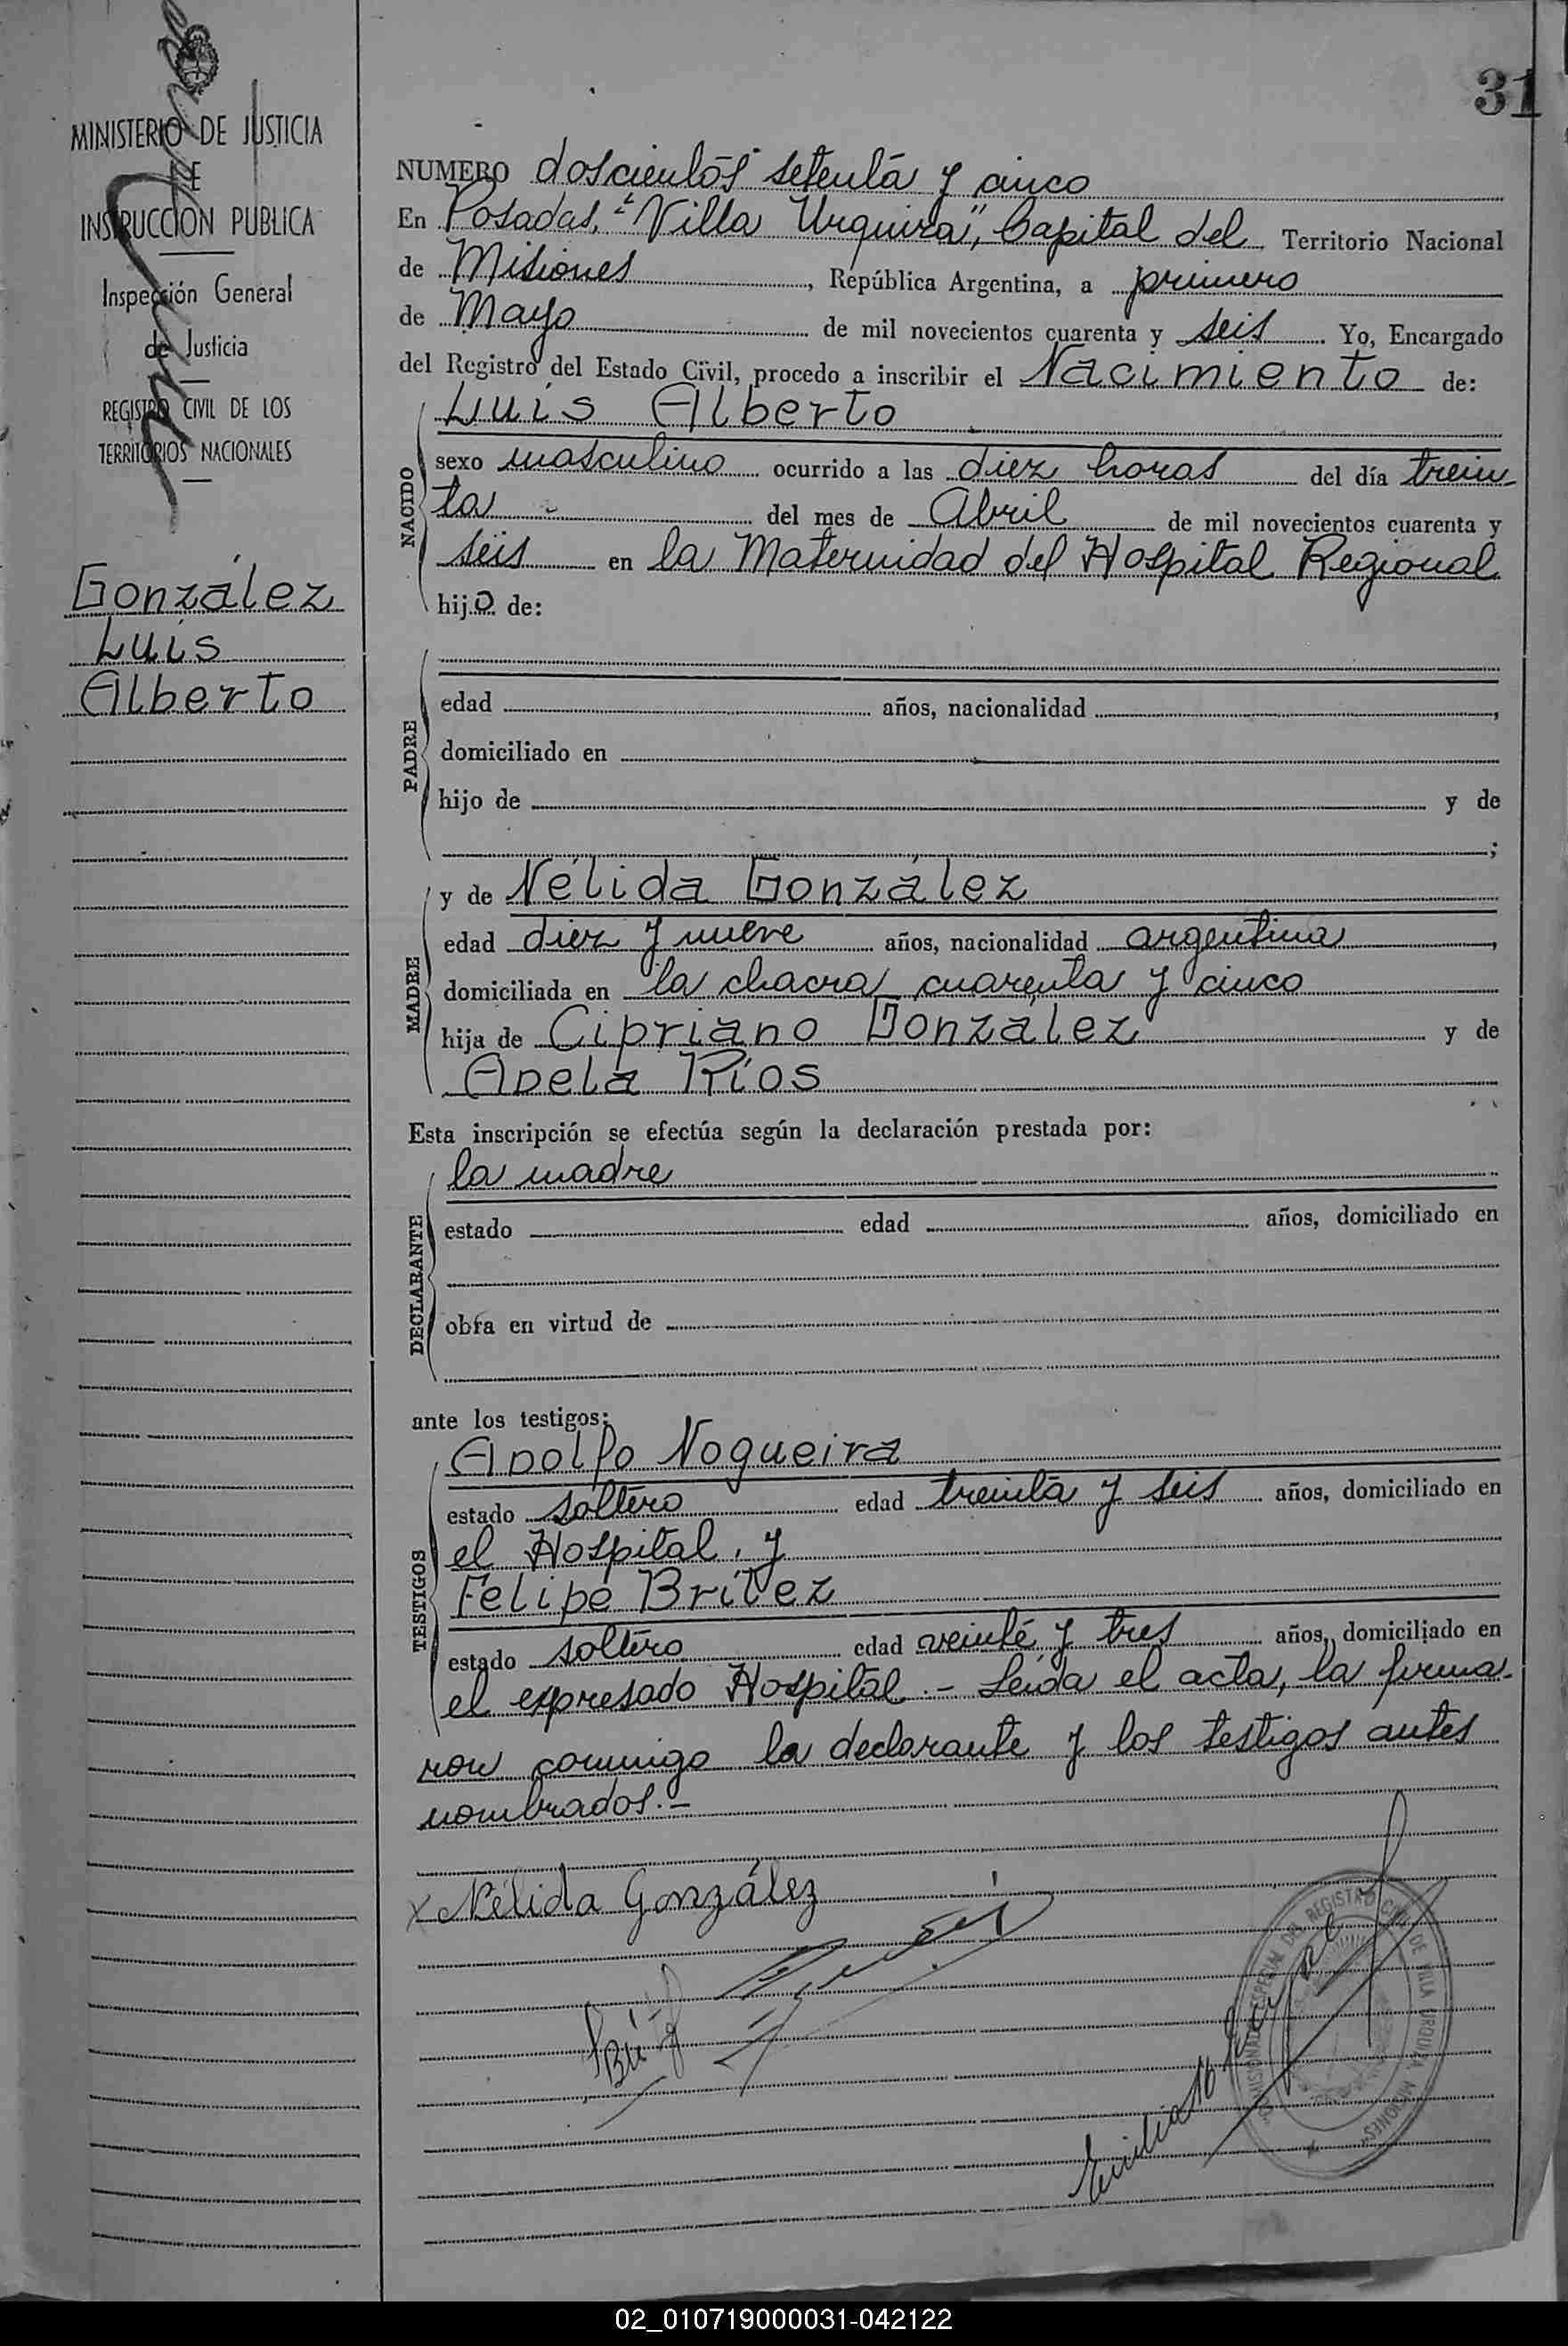 31
MINISTERIO DE JUSTICIA
E
INSTRUCCION PUBLICA
Inspección General
de Justicia
REGISTRO CIVIL DE LOS
TERRITORIOS NACIONALES
González
Luis
Alberto
NUMERO doscientos setenta y cinco
En Posadas, "Villa Urquiza", Capital del Territorio Nacional
de Misiones, República Argentina, a primero
de Mayo de mil novecientos cuarenta y seis. Yo, Encargado
del Registro del Estado Civil, procedo a inscribir el Nacimiento de:
Luis Alberto
NACIDO
sexo masculino ocurrido a las diez horas del día trein-
ta del mes de Abril de mil novecientos cuarenta y
seis en la Maternidad del Hospital Regional
hijo de:
PADRE
edad años, nacionalidad ,
domiciliado en
hijo de y de
;
MADRE
y de Nélida González
edad diez y nueve años, nacionalidad argentina,
domiciliada en la chacra cuarenta y cinco
hija de Cipriano González y de
Adela Ríos
Esta inscripción se efectúa según la declaración prestada por:
DECLARANTE
la madre
estado edad años, domiciliado en
obra en virtud de
ante los testigos:
TESTIGOS
Adolfo Nogueira
estado soltero edad treinta y seis años, domiciliado en
el Hospital, y
Felipe Brítez
estado soltero edad veinte y tres años, domiciliado en
el expresado Hospital.- Leída el acta, la firma-
ron conmigo la declarante y los testigos antes
nombrados.-
x Nélida González
REGISTRO CIVIL DE VILLA URQUIZA MISIONES
02_010719000031-042122